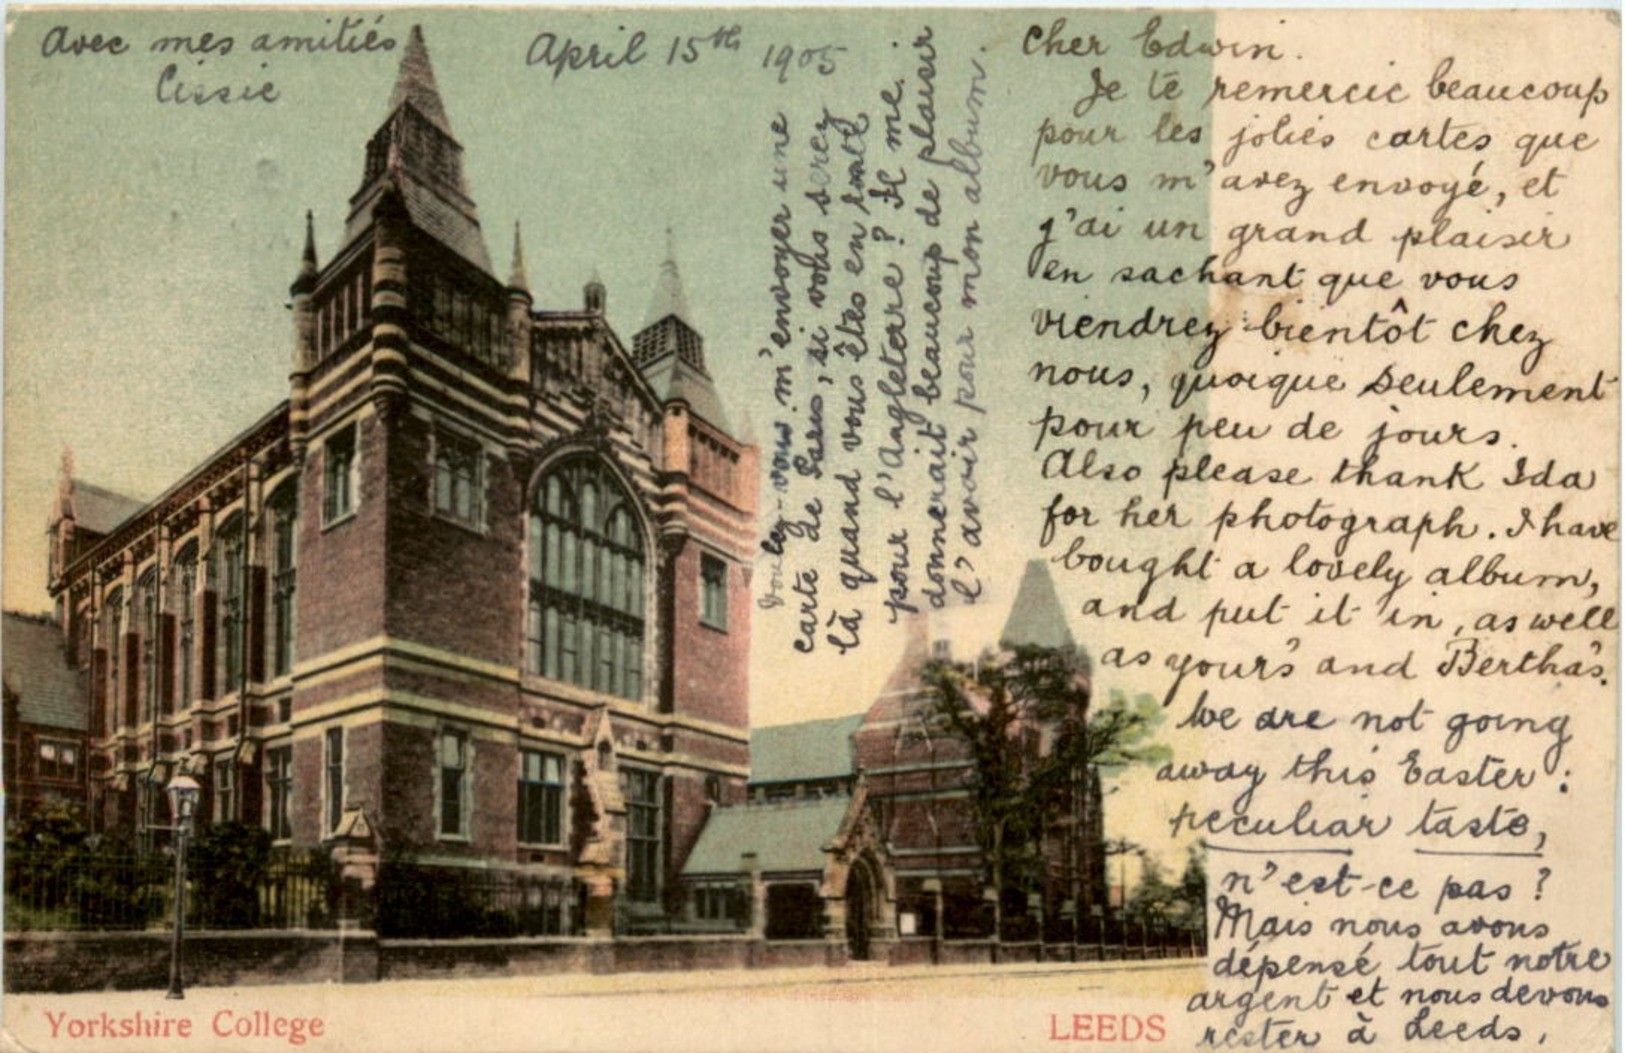 Avec mes amitiés
Cissie
April 15th 1905
Cher Edwin.
Je te remercie beaucoup
pour les jolies cartes que
vous m'avez envoyé, et
j'ai un grand plaisir
en sachant que vous
viendrez bientôt chez
nous, quoique seulement
pour peu de jours.
Also please thank Ida
for her photograph. I have
bought a lovely album,
and put it in, as well
as your's and Bertha's.
We are not going
away this Easter :
peculiar taste,
n'est-ce pas ?
Mais nous avons
dépensé tout notre
argent et nous devons
rester à Leeds.
Voulez-vous m'envoyer une
carte de Paris, si vous serez
là quand vous êtes en
pour l'Angleterre ? Il me
donnerait beaucoup de plaisir
l'avoir pour mon album.
Yorkshire College
LEEDS